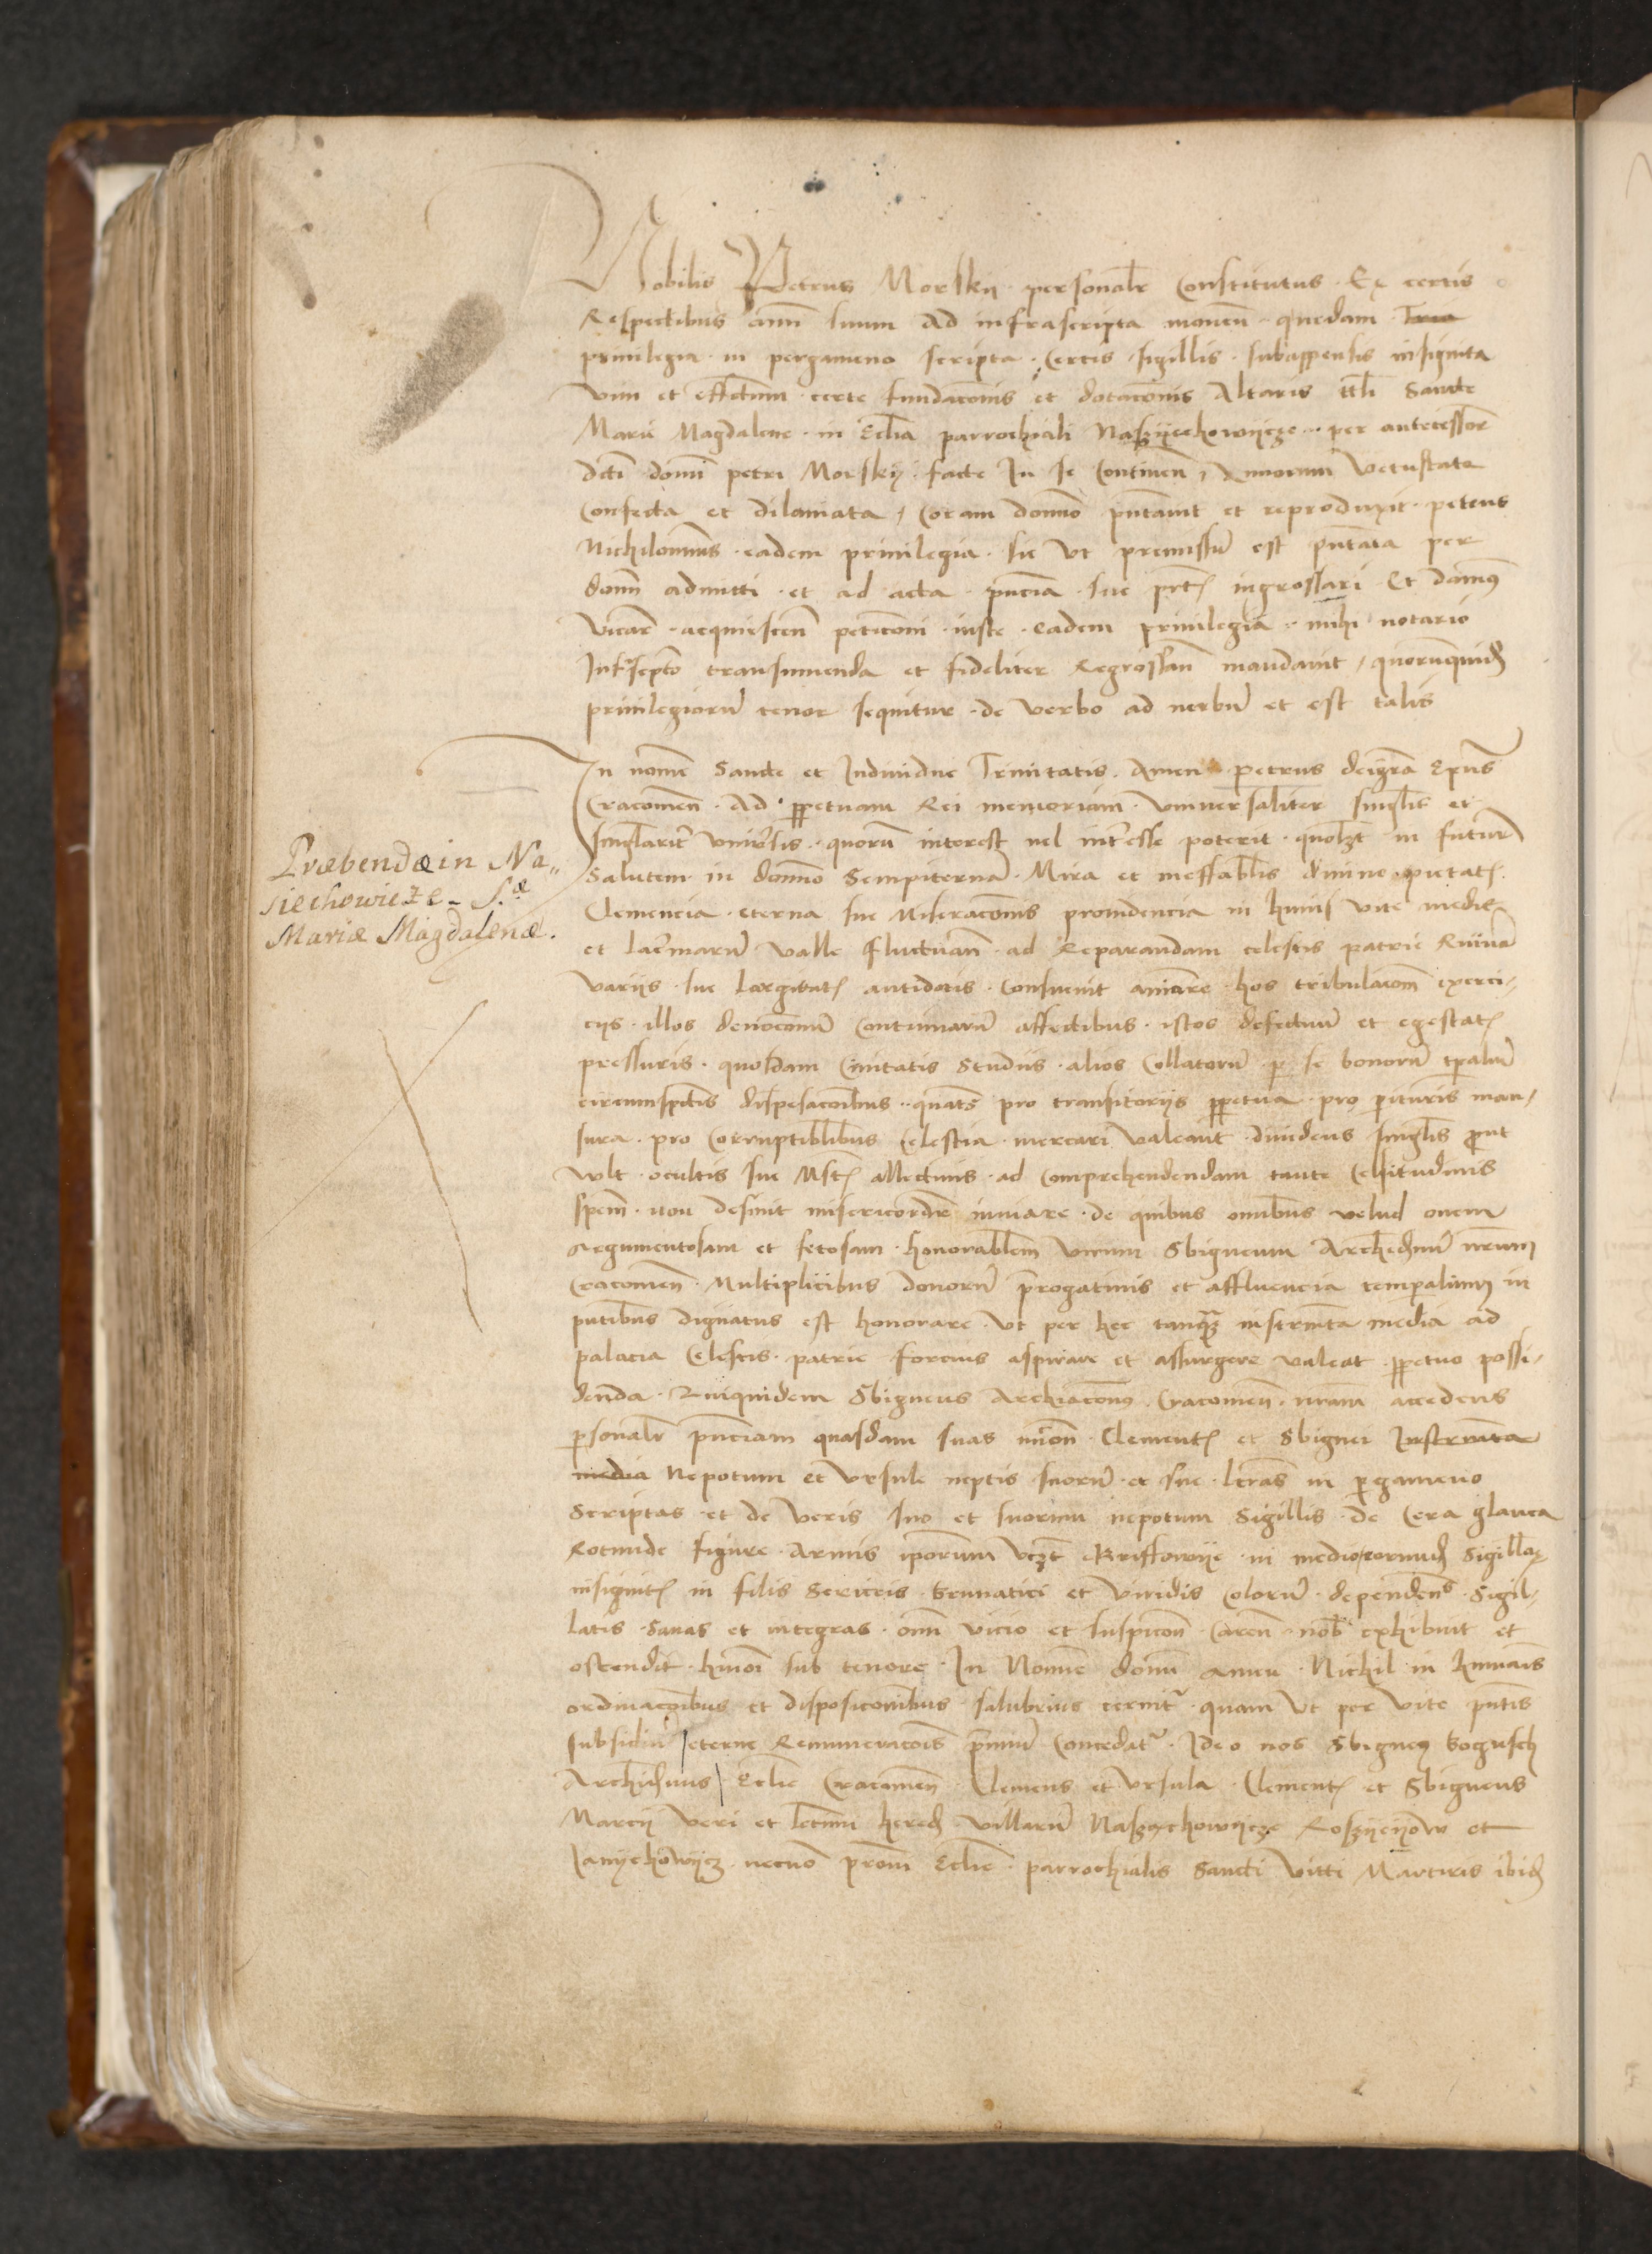 Nobilis Petrus Morskij personalr Constitutus Ex certis
Respectibus anm suum ad infrascripta mouen quedam Tria
priuilegia in pergameno scripta Certis sigillis subappensis insignita
vim et effectum certe fundacionis et dotacionis Altaris ttli Sancte
Marie Magdalene in Eclia parrochiali Naszyechowycze per antecessor
dcti domi petri Morskij facte In se Continen Annorum vetustate
Confecta et dilaniata Coram domino pntauit et reproduxit petens
Nichilominus eadem priuilegia sic vt premissum est pntata per
domm admitti et ad acta pncia sue ingrossari Et damus
vicari acquiescen peticioni iuste eadem priuilegia mihi notario
Infrascpto transumenda et fideliter Regrossan mandauit quorumquid
priuilegiorum tenor sequitur de verbo ad uerbum et est talis
In nomie Sancte et Indiuidue Trinitatis Amen petrus deigra Epus
Cracouien Ad ppetuam Rei memoriam vniuersaliter singlis et
singlariter vniuersis quorum interest uel interesse poterit quolzt in futurum
Præbendæ in Na„
siechowicze S.æ
Mariæ Magdalenæ.
Salutem in domino Sempiternam Mira et ineffablis diuine pietatis
Clemencia eterna sue Miseracionis prouidencia in huius vite medie
et lacrimarum valle fluctuan ad Reparandam celestis patrie Ruinam
variis sue largitatis antidotis Consueuit amare hos tribulacionum exerci-
cijs illos deuocionum Continuarum affectibus istos defectuum et egestatis
pressuris quosdam Ciuitatis Studiis alios Collatorum per se bonorum tpalium
circumsptis dispesacoibus quatenus pro transitoriis ppetua pro perituris man-
sura pro Corruptiblibus Celestia mercari valeant diuidens singlis prout
wlt ocultis sue Mstatis allectiuis ad Comprehendendam tante Celsitudinis
spem non desinit misericordie inuiare de quibus omibus velud ouem
argumentosam et fetosam honorablem virum Sbigneum Archidnum nrum
Cracouien Multiplicibus donorum prerogatiuis et affluencia temporalium in
pntibus dignatus est honorare vt per hec tanquam instrumta media ad
palacia Celestis patrie forcius aspirare et assurgere valeat ppetuo possi-
denda Quiquidem Sbigneus Archidiaconus Cracouien nram accedens
personalr pnciam quasdam suas Clementis et Sbignei Instrumta
media Nepotum et vrsule neptis suorum et sue lras in pergameno
Scriptas et de veris suo et suorum nepotum Sigillis de Cera glauca
Rotunde figure Armis iporum vczt Griffowye in medio eorumd Sigillorum
insignitis in filis sericeis et viridis Colorum dependens Sigil-
latis Sanas et integras omi vicio et suspicion Caren nob exhibuit et
ostendit hmoi sub tenore In Nomine domi amen Nichil in humais
ordinacoibus et disposicoibus salubrius cernitur quam vt per vite pntis
subsidium eterne Remuneracois premium Concedatur Ideo nos Sbigneus
Eclie Cracouien Clemens et vrsula Clementis et Sbigneus
Marcij veri et heredes villarum Naszychowycze et
necnon Eclie parrochialis Sancti vitti Martiris ibid